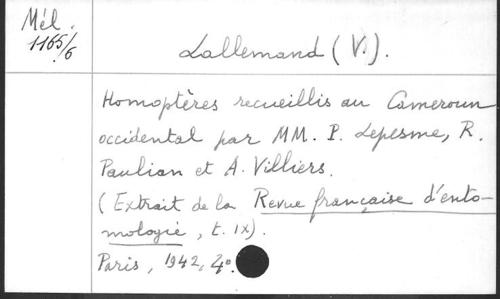 Mél.
1165/6
Lallemand (V.).
Homoptères recueillis au Cameroun
occidental par MM. P. Lepesme, R.
Paulian et A. Villiers.
(Extrait de la Revue française d'ento-
mologie, t. IX).
Paris, 1942, 4°.